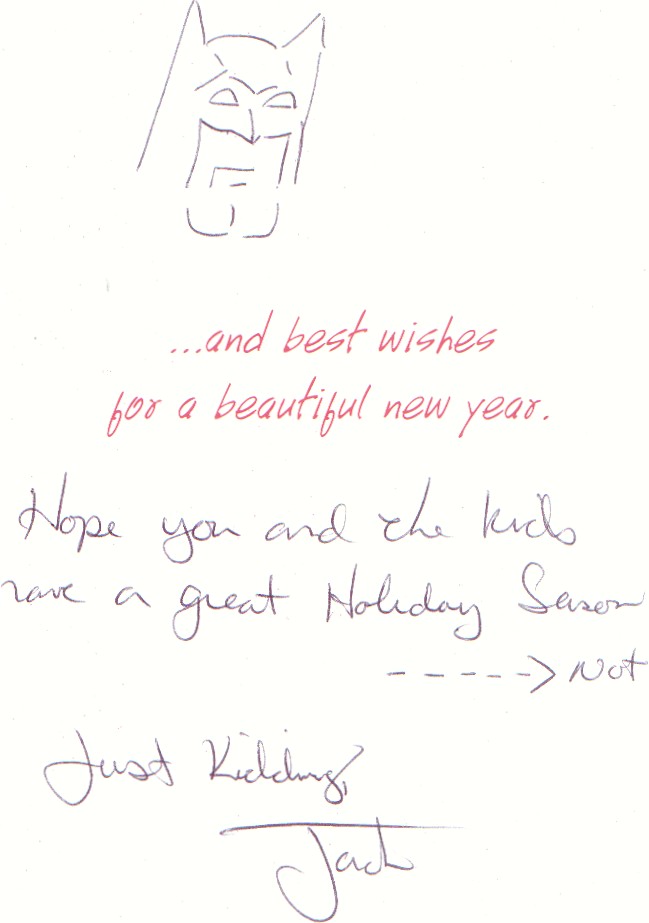 ...and best wishes
for a beautiful new year.
Hope you and the kids
have a great Holiday Season
-----> Not
Just Kidding,
Jack